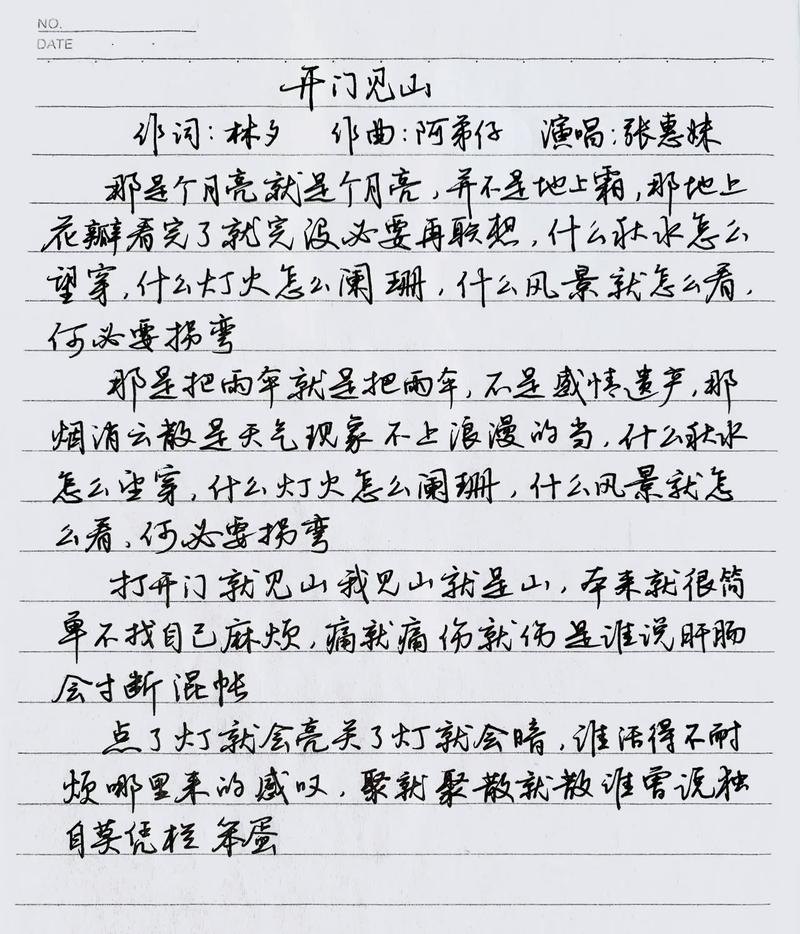 NO.
DATE
开门见山
作词:林夕 作曲:阿弟仔 演唱:张惠妹
那是个月亮就是个月亮,并不是地上霜,那地上
花瓣看完了就完没必要再联想,什么秋水怎么
望穿,什么灯火怎么阑珊,什么风景就怎么看,
何必要拐弯
那是把雨伞就是把雨伞,不是感情遗产,那
烟消云散是天气现象不上浪漫的当,什么秋水
怎么望穿,什么灯火怎么阑珊,什么风景就怎
么看,何必要拐弯
打开门就见山我见山就是山,本来就很简
单不找自己麻烦,痛就痛伤就伤是谁说肝肠
会寸断混帐
点了灯就会亮关了灯就会暗,谁活得不耐
烦哪里来的感叹,聚就聚散就散谁曾说独
自莫凭栏 笨蛋